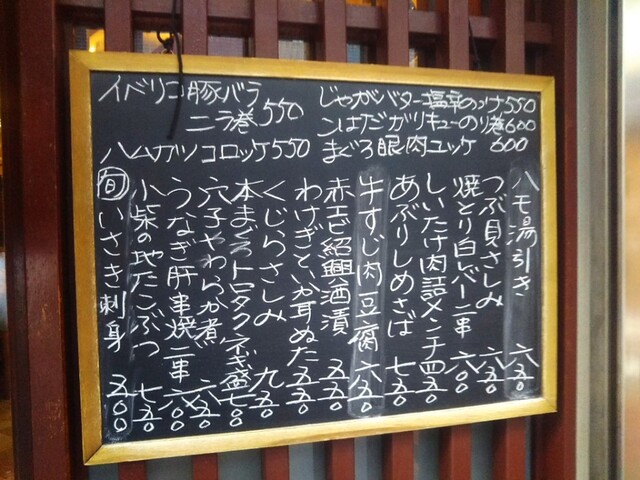 イベリコ豚バラ
ニラ巻 550
ハムカツコロッケ 550
じゃがバター塩辛のっけ 550
こはだガリキューのり巻 600
まぐろ眼肉ユッケ 600
ハモ湯引き 六五〇
つぶ貝さしみ 六五〇
焼とり白レバー二串 六〇〇
しいたけ肉詰メンチ 四五〇
あぶりしめさば 七五〇
牛すじ肉豆腐 六五〇
赤エビ紹興酒漬 五五〇
わけぎといか耳ぬた 五五〇
くじらさしみ 九五〇
本まぐろトロタクネギ盛 七五〇
穴子やわらか煮 六五〇
うなぎ肝串焼二串 六〇〇
小柴の地だこぶつ 七五〇
旬 いさき刺身 五〇〇